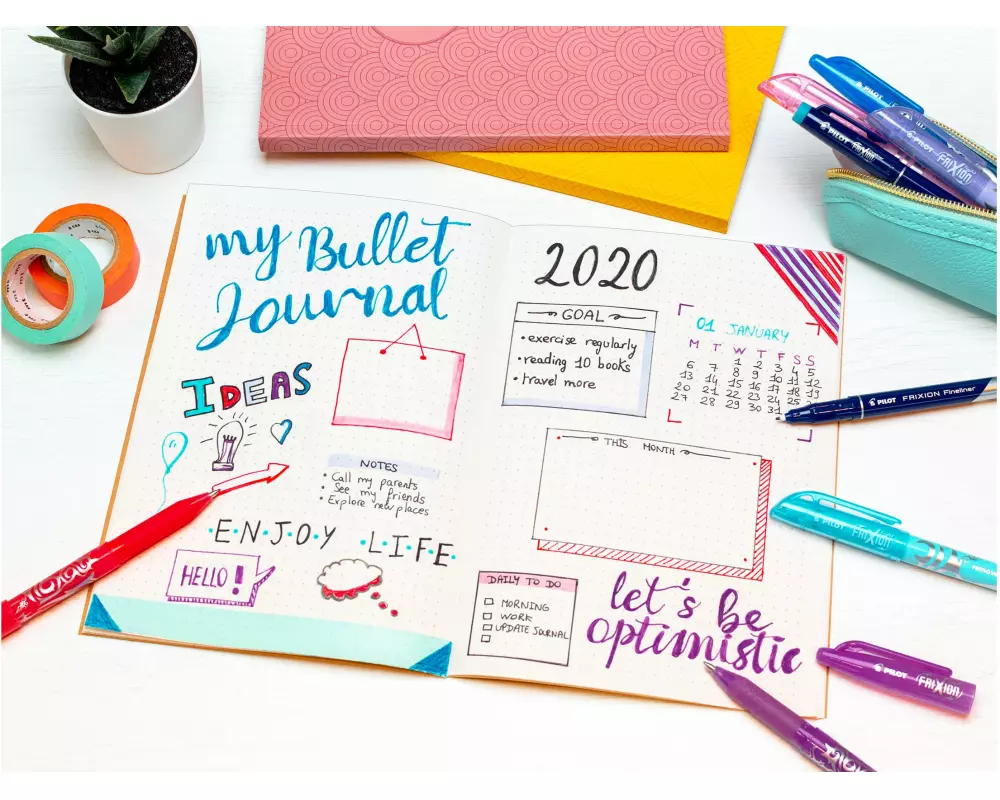 my Bullet
Journal
IDEAS
NOTES
• Call my parents
• See my friends
• Explore new places
E·N·J·O·Y ·L·I·F·E·
HELLO!
2020
GOAL
• exercise regularly
• reading 10 books
• travel more
01 JANUARY
M T W T F S S
1 2 3 4 5
6 7 8 9 10 11 12
13 14 15 16 17 18 19
20 21 22 23 24 25
27 28 29 30 31
THIS MONTH
DAILY TO DO
MORNING
WORK
UPDATE JOURNAL
let's be
optimistic
PILOT
PILOT
PILOT FRIXION
PILOT FRIXION Fineliner
PILOT FRIXION
PILOT FRIXION